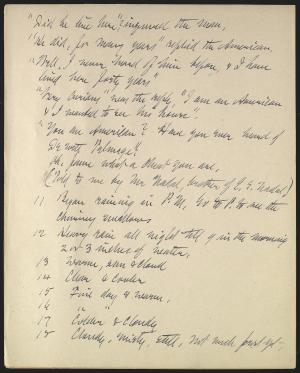 "Did he live here," inquired the man.
"He did, for many years" replied the American.
"Well, I never heard of him before, & I have
lived here forty years"
"Very curious" was the reply, "I am an American
& I wanted to see his house".
"You an American? Have you ever heard of
De Witt Talmage?
Oh, gone what a you are.
(Told to me by Mr Nadal, brother of E. S. Nadal.)
11 Began raining in P.M. to P. to see the
chimney swallows
12 Heavy rain all night till 9 in the morning
2 or 3 inches of water.
13 Warm, sun & cloud
14 Clear & cooler
15 Fine day & warm.
16 " "
17 Colder & Cloudy
18 Cloudy, misty, still, not much frost yet.